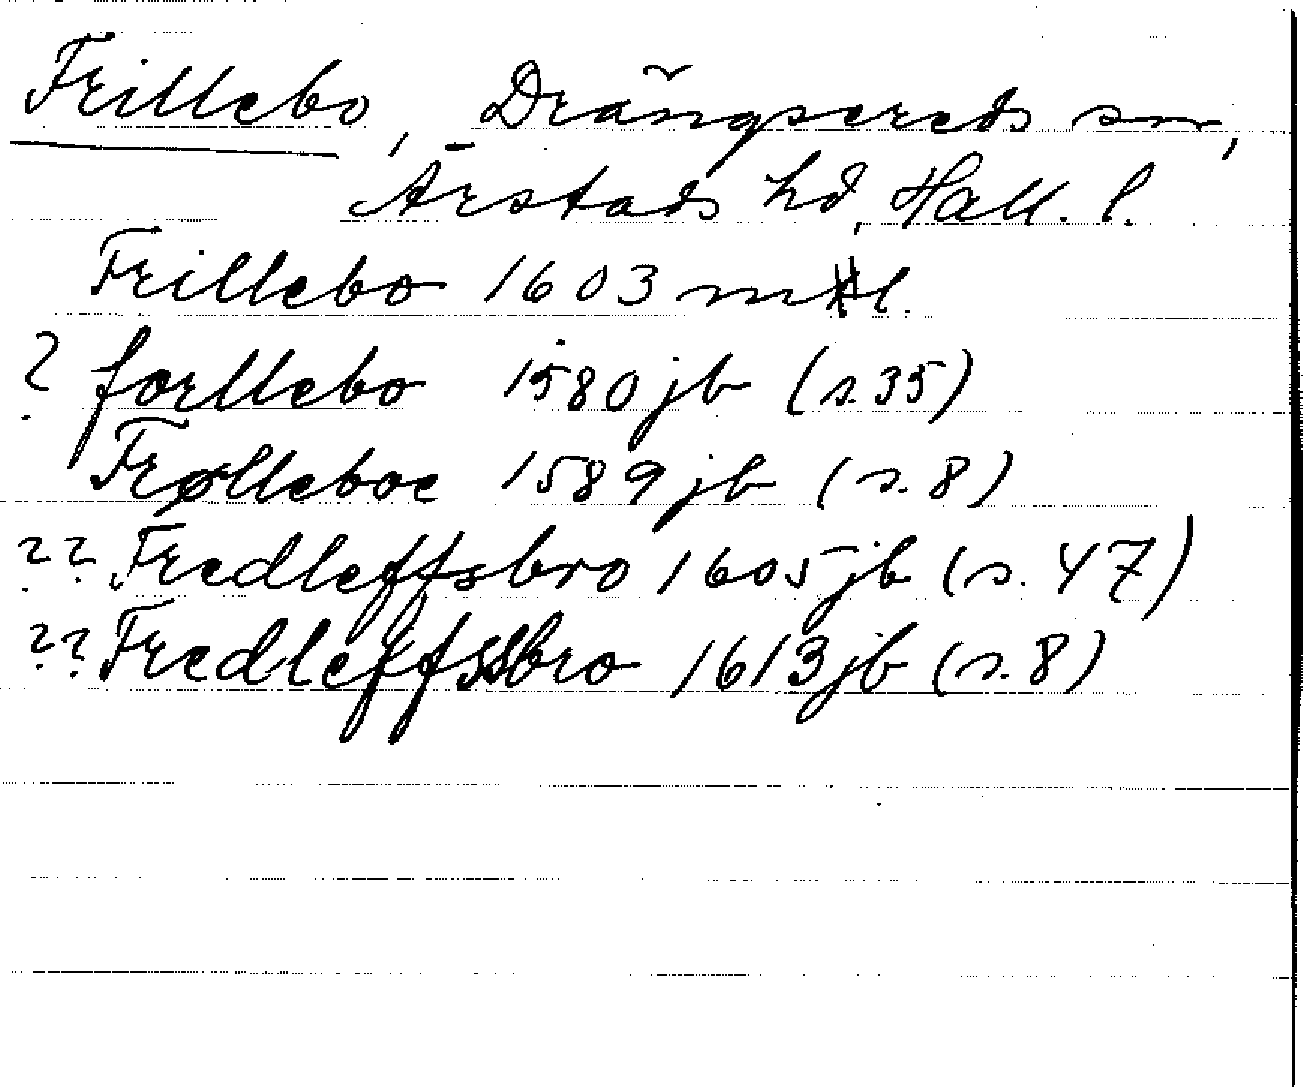 Frillebo, Drängsereds sn,
Årstads hd, Hall. l.
Frillebo 1603 mtl.
? forllebo 1580 jb (s. 35)
Frølleboe 1589 jb (s. 8)
?? Fredleffsbro 1605 jb (s. 47)
?? Fredleffssbro 1613 jb (s. 8)